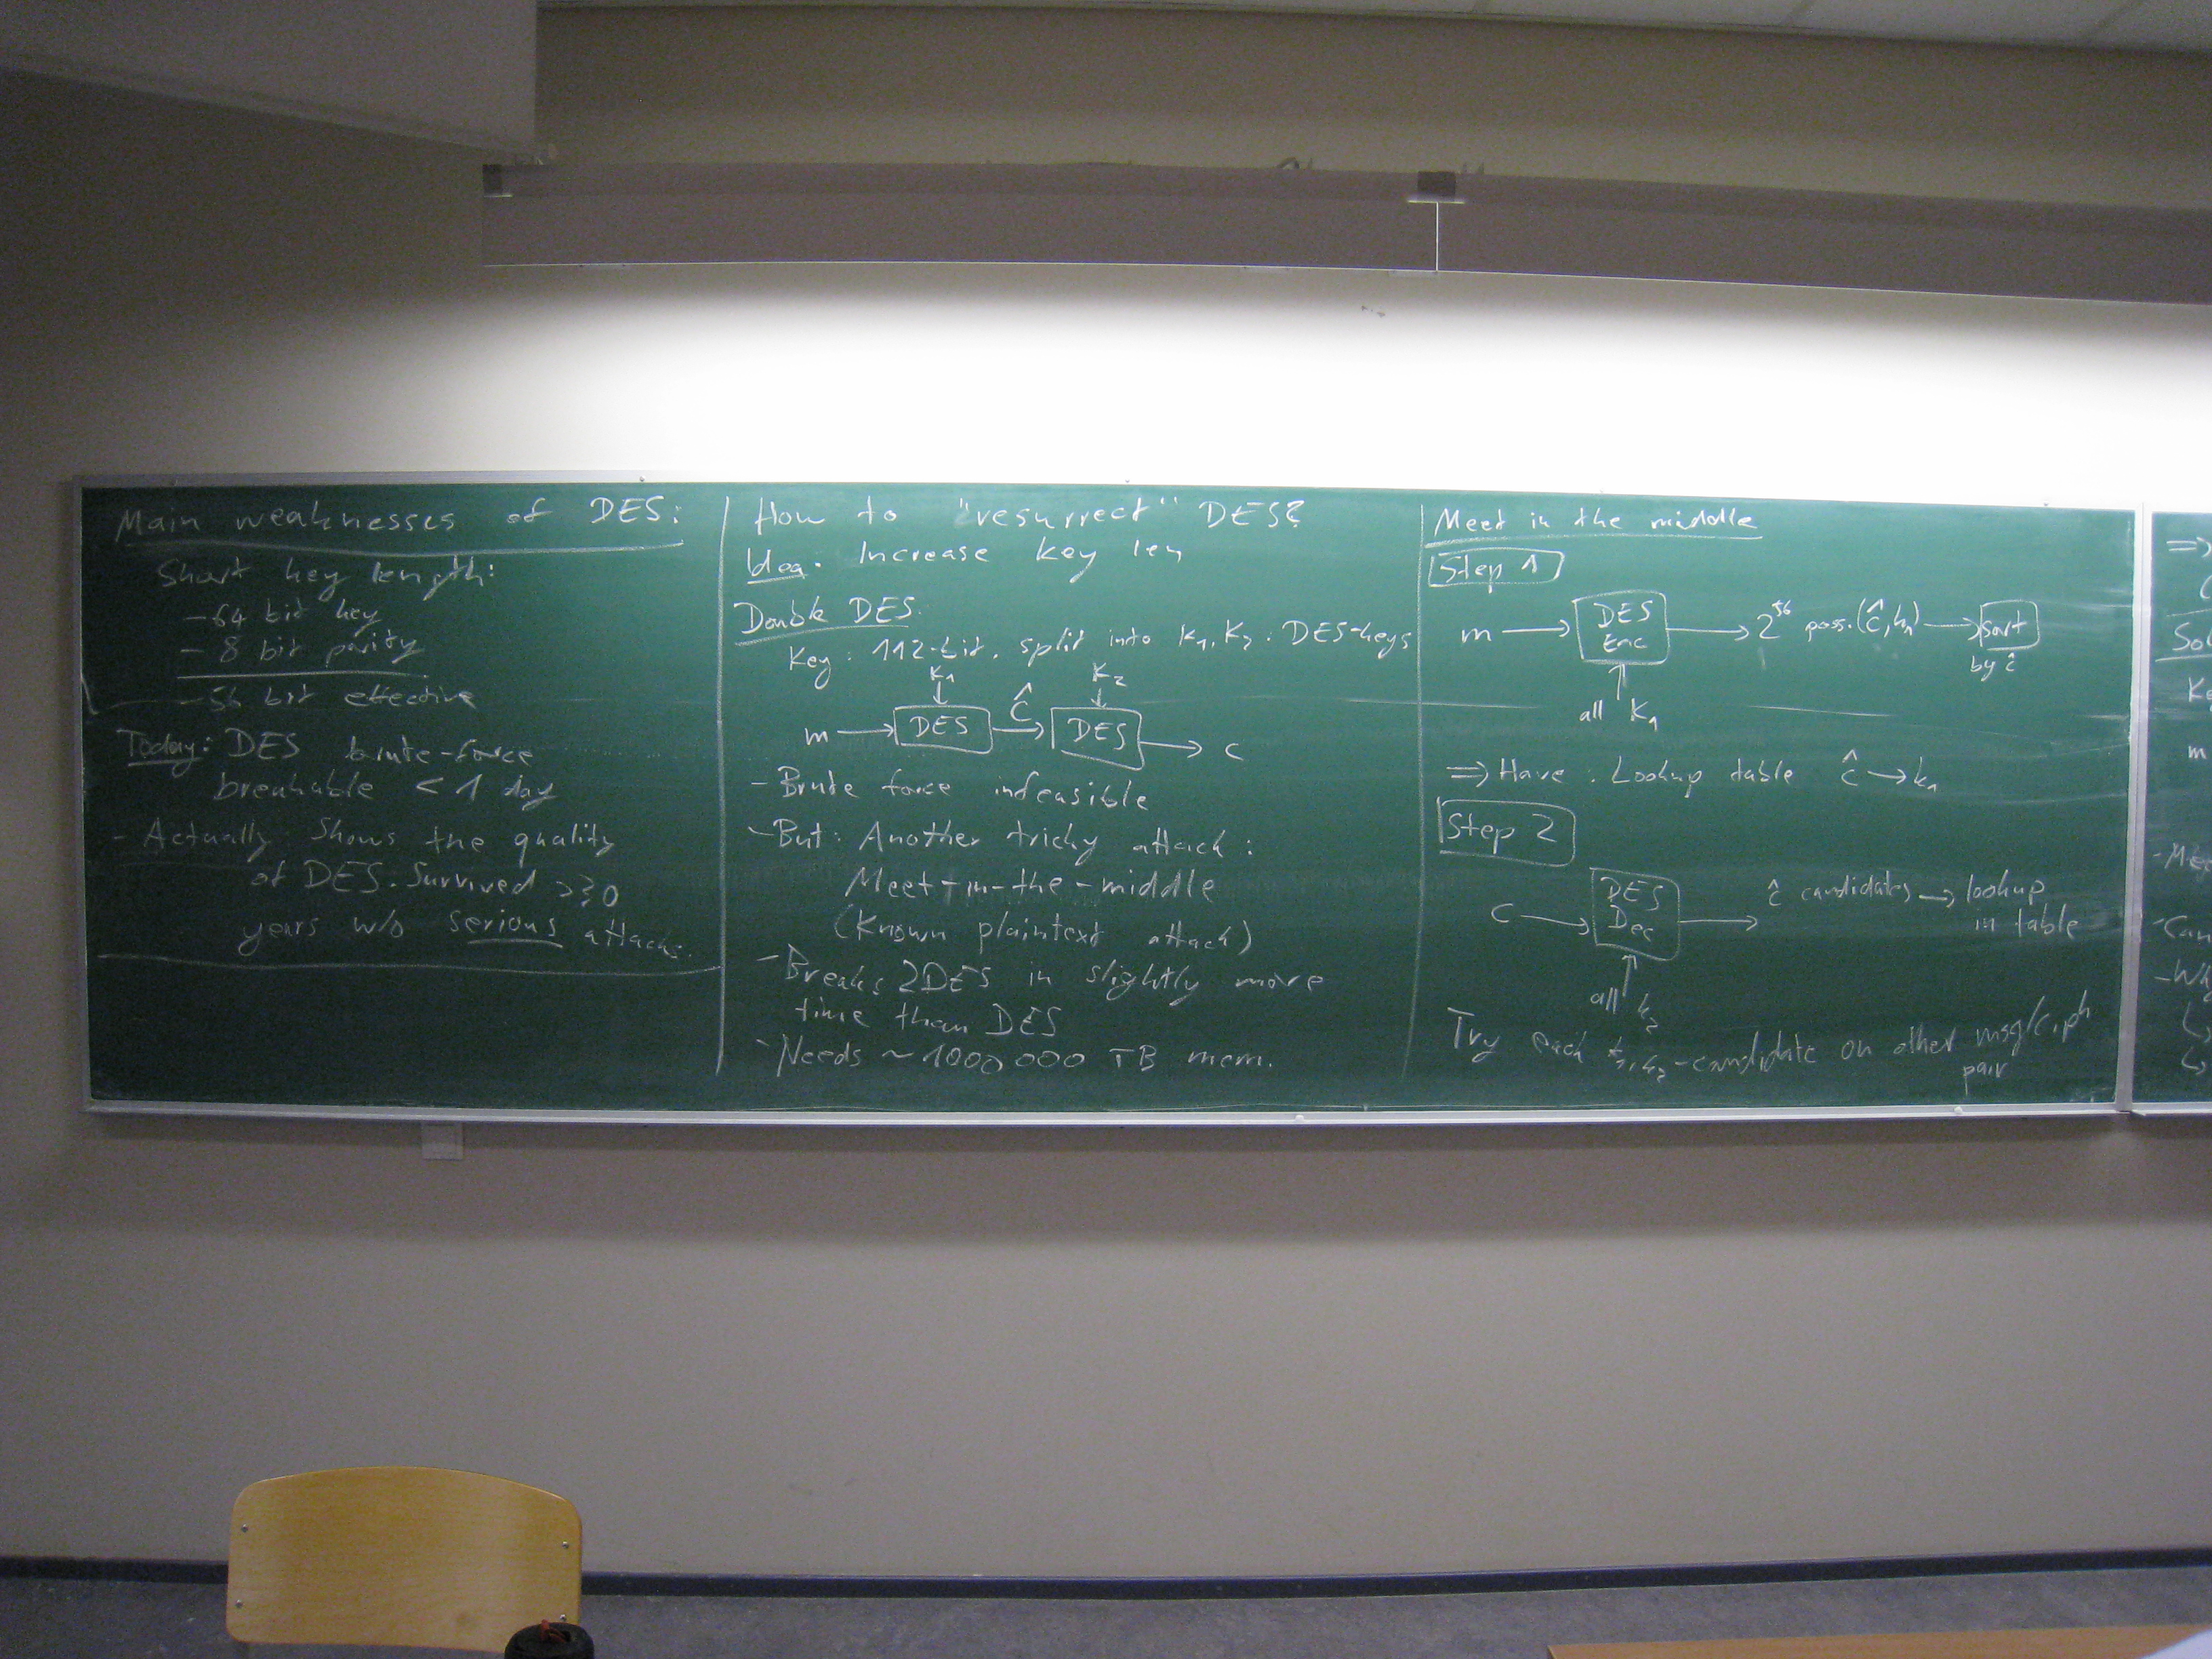 Main weaknesses of DES:
Short key length:
- 64 bit key
- 8 bit parity
- 56 bit effective
Today: DES brute-force
breakable < 1 day
- Actually: Shows the quality
of DES. Survived >30
years w/o serious attacks.
How to "resurrect" DES?
Idea: Increase key len
Double DES:
Key: 112-bit, split into K₁, K₂: DES-keys
K₁ K₂
m → DES → Ĉ → DES → c
- Brute force infeasible
- But: Another tricky attack:
Meet-in-the-middle
(Known plaintext attack)
- Breaks 2DES in slightly more
time than DES
- Needs ~1000000 TB mem.
Meet in the middle
Step 1
m → DES Enc → 2⁵⁶ poss. (ĉ, k₁) → Sort
by ĉ
all K₁
⇒ Have: Lookup table ĉ → k₁
Step 2
C → DES Dec → ĉ candidates → lookup
in table
all k₂
Try each k₁,k₂-candidate on other msg/ciph
pair
⇒
m